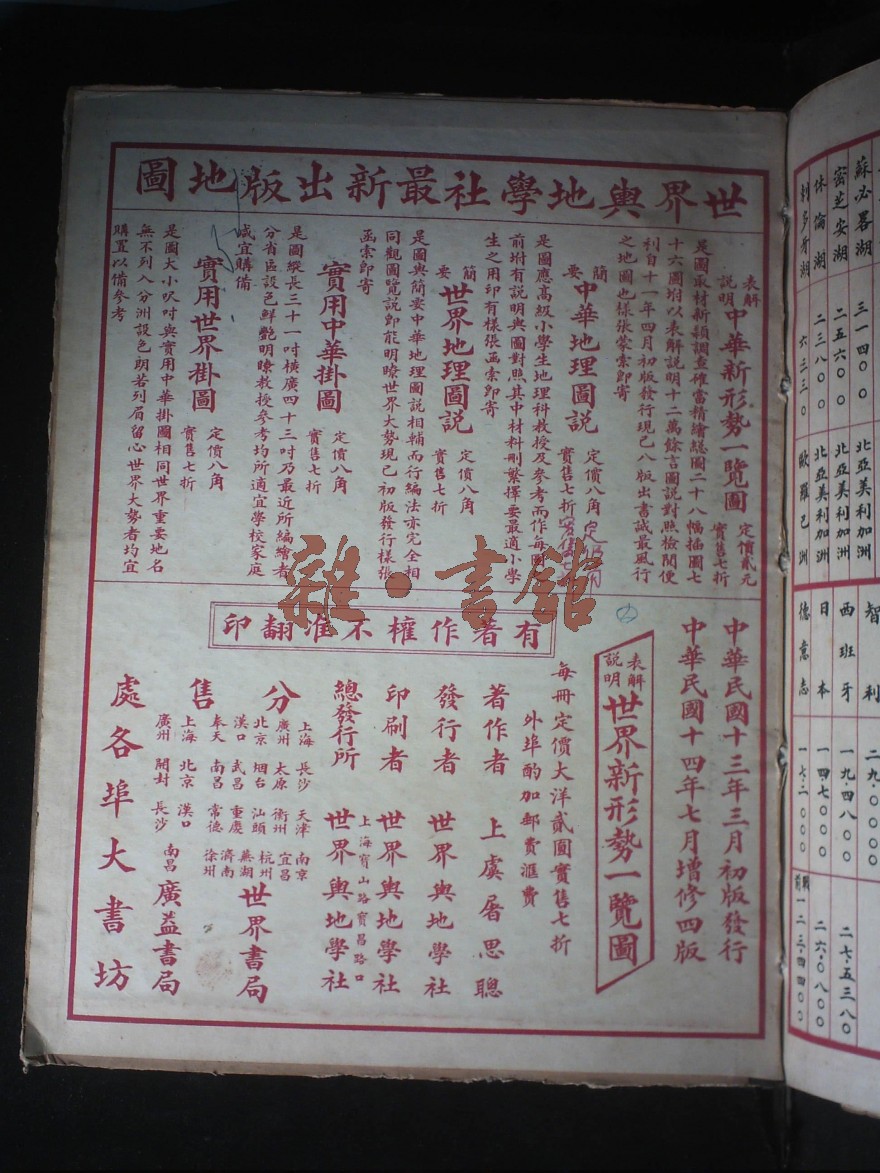 世界輿地學社最新出版地圖
表解
說明
中華新形勢一覽圖
定價貳元
實售七折
是圖取材新穎調查確當精繪總圖二十八幅插圖七
十六圖坿以表解說明十二萬餘言圖說對照檢閱便
利自十一年四月初版發行現已八版出書誠最風行
之地圖也樣張蒙索即寄
簡要
中華地理圖説
定價八角
實售七折
是圖應高級小學生地理科教授及參考而作每圖
前坿有説明與圖對照其中材料刪繁擇要最適小學
生之用印有樣張函索即寄
簡要
世界地理圖説
定價八角
實售七折
是圖與簡要中華地理圖説相輔而行編法亦完全相
同觀圖覽説即能明瞭世界大勢現已初版發行樣張
函索即寄
實用中華掛圖
定價八角
實售七折
是圖縱長三十一吋橫廣四十三吋乃最近所編繪者
分省區設色鮮艷明瞭教授參考均所適宜學校家庭
咸宜購備
實用世界掛圖
定價八角
實售七折
是圖大小尺吋與實用中華掛圖相同世界重要地名
無不列入分洲設色朗若列眉留心世界大勢者均宜
購置以備參考
有著作權不准翻印
中華民國十三年三月初版發行
中華民國十四年七月增修四版
表解
說明
世界新形勢一覽圖
每冊定價大洋貳圓實售七折
外埠酌加郵費滙費
著作者 上虞屠思聰
發行者 世界輿地學社
印刷者 世界輿地學社
上海寶山路寶昌路口
總發行所 世界輿地學社
分售處
上海 長沙 天津 南京
廣州 太原 衢州 宜昌
北京 烟台 汕頭 杭州
漢口 武昌 重慶 蕪湖
奉天 南昌 常德 濟南
徐州
世界書局
上海 北京 漢口
廣州 開封 長沙 南昌
廣益書局
各埠大書坊
雜·書館
智利
二九·〇〇〇〇
西班牙
一九·四八〇〇
二七·五三八〇
日本
一四·七〇〇〇
二六·〇八〇〇
德意志
一七·二〇〇〇
戰前一二三·四四〇〇
蘇必畧湖
三一四〇〇
北亞美利加洲
密芝安湖
二五六〇〇
北亞美利加洲
休倫湖
二三八〇〇
北亞美利加洲
六三三〇
歐羅巴洲